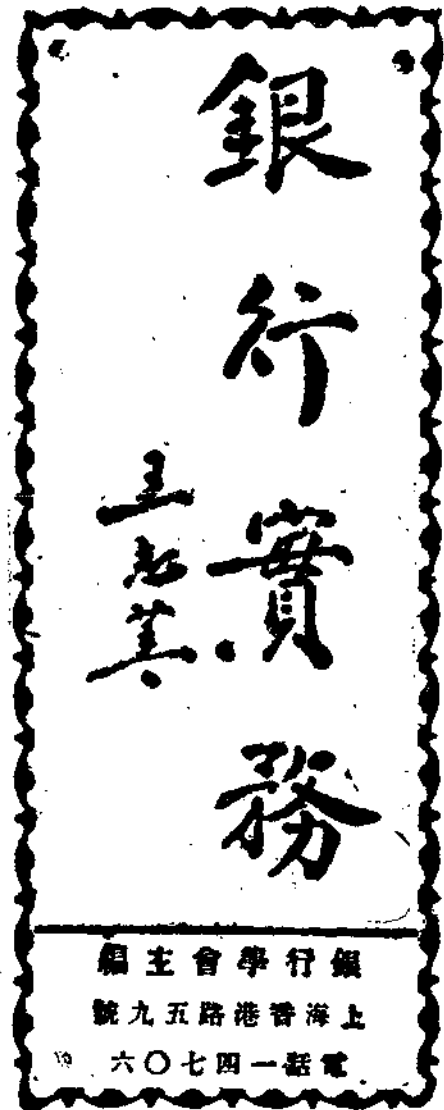 銀行實務
王志莘
銀行學會主編
上海香港路五九號
電話一四七〇六